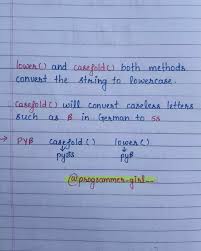 lower() and casefold() both methods
convert the string to lowercase.
casefold() will convert caseless letters
such as ß in German to ss
→ PYß casefold() lower()
↓ ↓
pyss pyß
@programmer-girl__